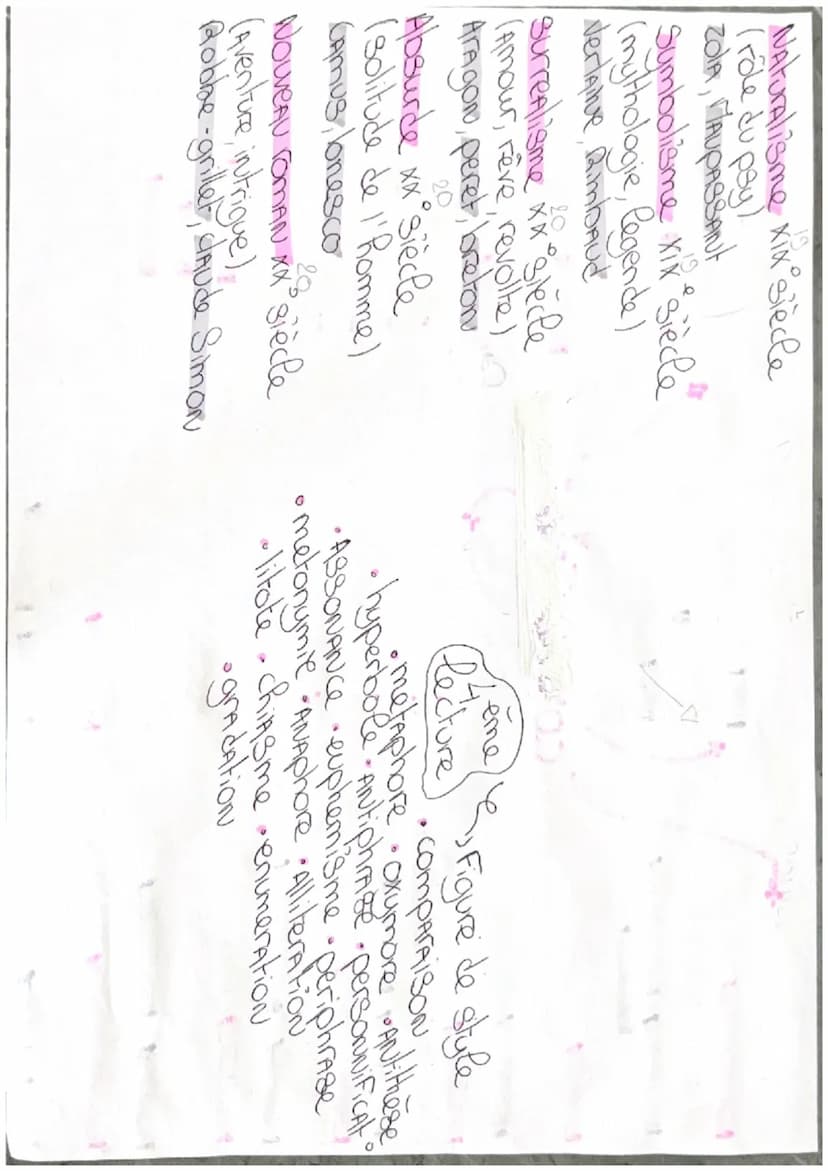 NATURALISME XIX° siècle
19
(rôle du psy)
ZOLA, MAUPASSANT
Symbolisme XIX° siècle
19
(mythologie, légende)
Verlaine, Rimbaud
Surrealisme XX° siècle
20
(Amour, rêve, revolte)
Aragon, peret, breton
Absurde XX° siècle
20
(solitude de l'homme)
Camus, Ionesco
NOUVEAU ROMAN XX° siècle
20
(Aventure, intrigue)
Robbe-grillet, claude Simon
4ème
lecture
Figure de style
• comparaison
• métaphore • oxymore • Antithèse
• hyperbole • Antiphrase • personnificat°
• Assonance • euphemisme • periphrase
• metonymie • Anaphore • Alliteration
• litote • chiasme • enumeration
• gradation